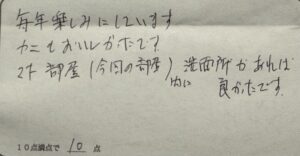 毎年楽しみにしています
カニもおいしかたで?
又 部屋(今回の部屋) 洗面所があれば
内に 良かたです。
10点満点で 10 点